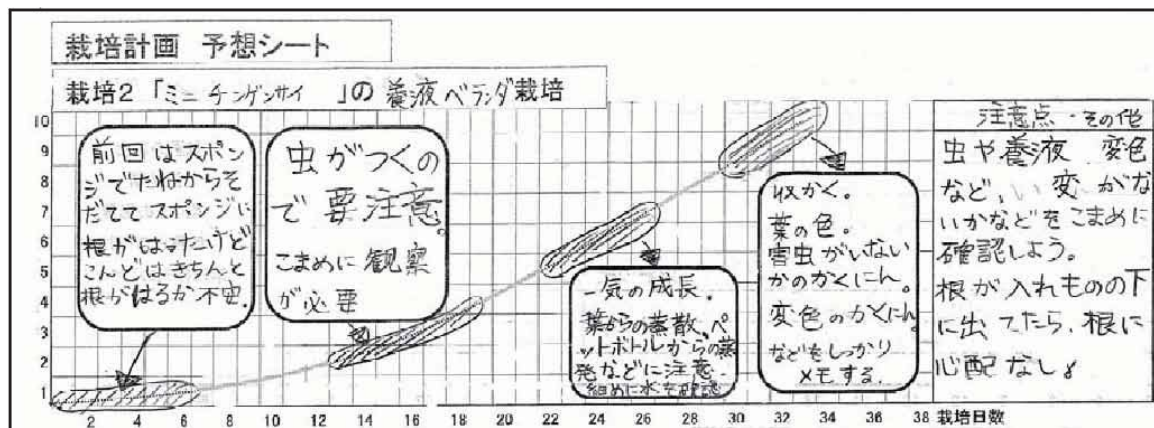 栽培計画 予想シート
栽培2 「ミニ チンゲンサイ 」の 養液ベランダ栽培
10
9
8
7
6
5
4
3
2
1
前回はスポン
ジでたねからそ
だててスポンジに
根がはったけど
こんどはきちんと
根がはるか不安.
虫がつくの
で要注意。
こまめに観察
が必要
一気の成長.
葉からの蒸散、ペ
ットボトルからの蒸
発などに注意.
細めに水を確認
収かく。
葉の色。
害虫がいない
かのかくにん。
変色のかくにん。
などをしっかり
メモする.
注意点・その他
虫や養液 変色
など、い変がな
いかなどをこまめに
確認しよう。
根が入れものの下
に出てたら、根に
心配なし
2 4 6 8 10 12 14 16 18 20 22 24 26 28 30 32 34 36 38 栽培日数